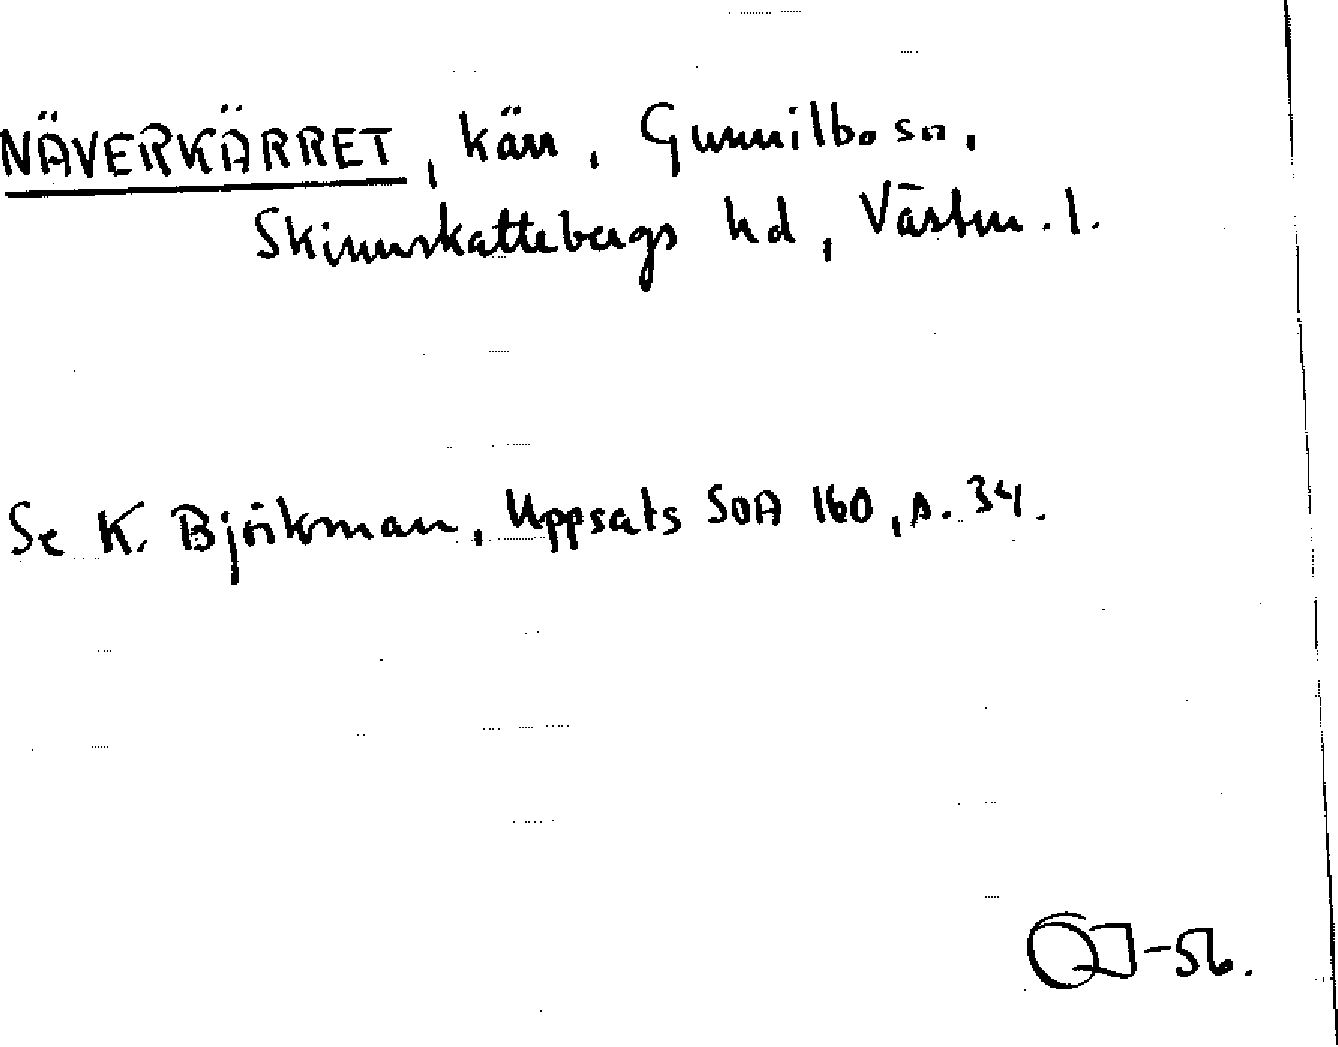 NÄVERKÄRRET, kärr, Gunnilbo sn,
Skinnskattebergs hd, Västm. l.
Se K. Björkman, Uppsats SOA 160, s. 34.
-56.